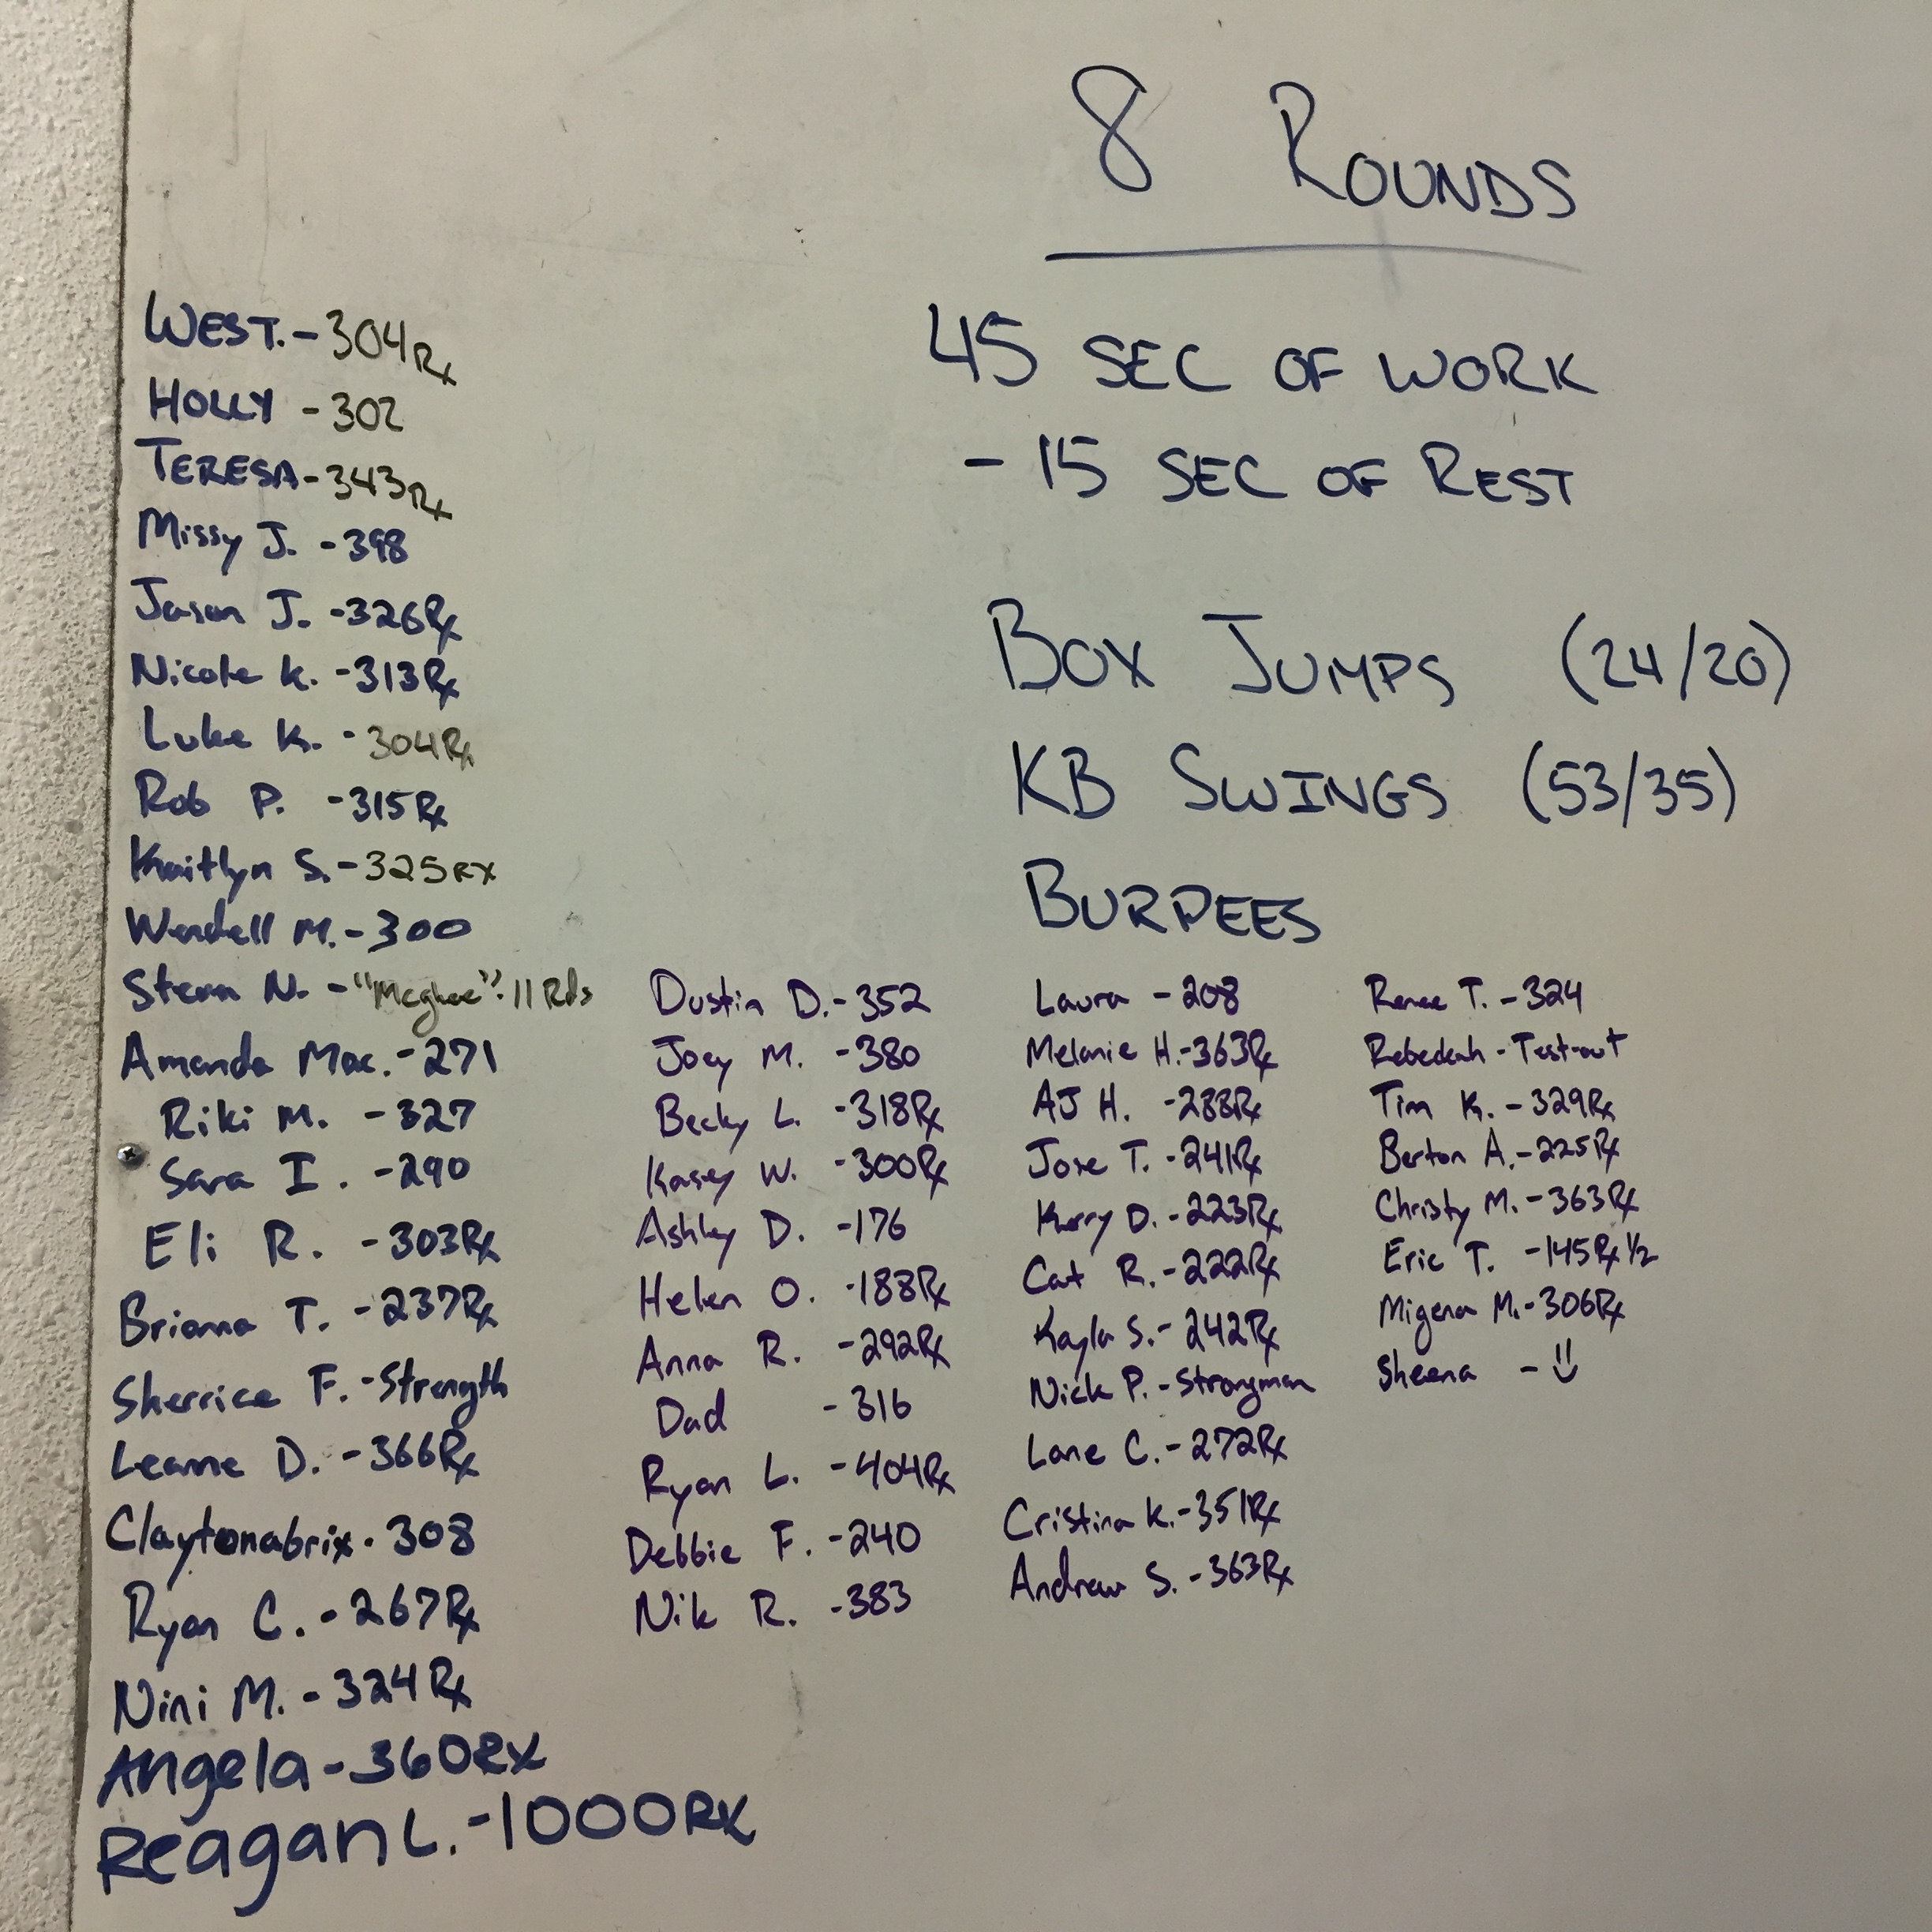 8 ROUNDS
45 SEC OF WORK
- 15 SEC OF REST
BOX JUMPS (24/20)
KB SWINGS (53/35)
BURPEES
WEST. - 304 Rx
HOLLY - 302
TERESA - 343 Rx
Missy J. - 398
Jason J. - 326 Rx
Nicole K. - 313 Rx
Luke K. - 304 Rx
Rob P. - 315 Rx
Kaitlyn S. - 325 RX
Wendell M. - 300
Steven N. - "Mcghee": 11 Rds
Amanda Mac. - 271
Riki M. - 327
Sara I. - 290
Eli R. - 303 Rx
Brianna T. - 237 Rx
Sherrice F. - Strength
Leanne D. - 366 Rx
Claytonabrix - 308
Ryan C. - 267 Rx
Nini M. - 324 Rx
Angela - 360 RX
Reagan L. - 1000 RX
Dustin D. - 352
Joey M. - 380
Becky L. - 318 Rx
Kasey W. - 300 Rx
Ashley D. - 176
Helen O. - 188 Rx
Anna R. - 292 Rx
Dad - 316
Ryan L. - 404 Rx
Debbie F. - 240
Nik R. - 383
Laura - 208
Melanie H. - 363 Rx
AJ H. - 288 Rx
Jose T. - 241 Rx
Kerry D. - 223 Rx
Cat R. - 222 Rx
Kayla S. - 242 Rx
Nick P. - Strongman
Lane C. - 272 Rx
Cristina K. - 351 Rx
Andrew S. - 363 Rx
Renee T. - 324
Rebeckah - Test-out
Tim K. - 329 Rx
Berton A. - 225 Rx
Christy M. - 363 Rx
Eric T. - 145 Rx 1/2
Migena M. - 306 Rx
Sheena -